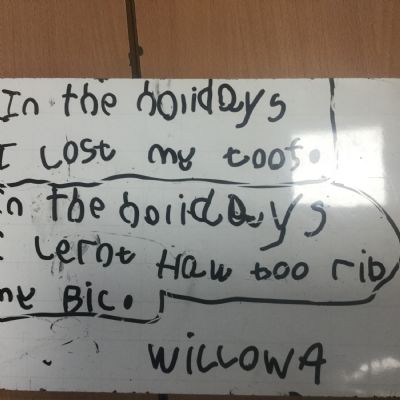 In the holidays
I lost my toof.
In the holidays
I lernt Haw too rib
my BIC.
WILLOWA